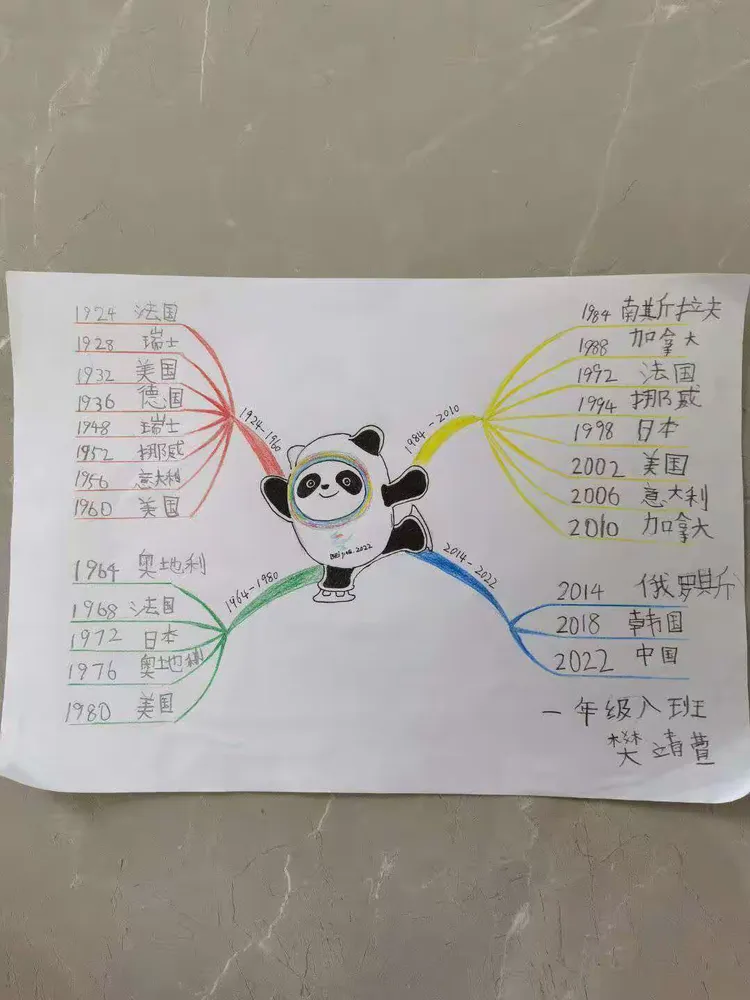 1924 法国
1928 瑞士
1932 美国
1936 德国
1948 瑞士
1952 挪威
1956 意大利
1960 美国
1924-1960
1984 南斯拉夫
1988 加拿大
1992 法国
1994 挪威
1998 日本
2002 美国
2006 意大利
2010 加拿大
1984-2010
Beijing.2022
1964 奥地利
1968 法国
1972 日本
1976 奥地利
1980 美国
1964-1980
2014-2022
2014 俄罗斯
2018 韩国
2022 中国
一年级八班
樊靖萱